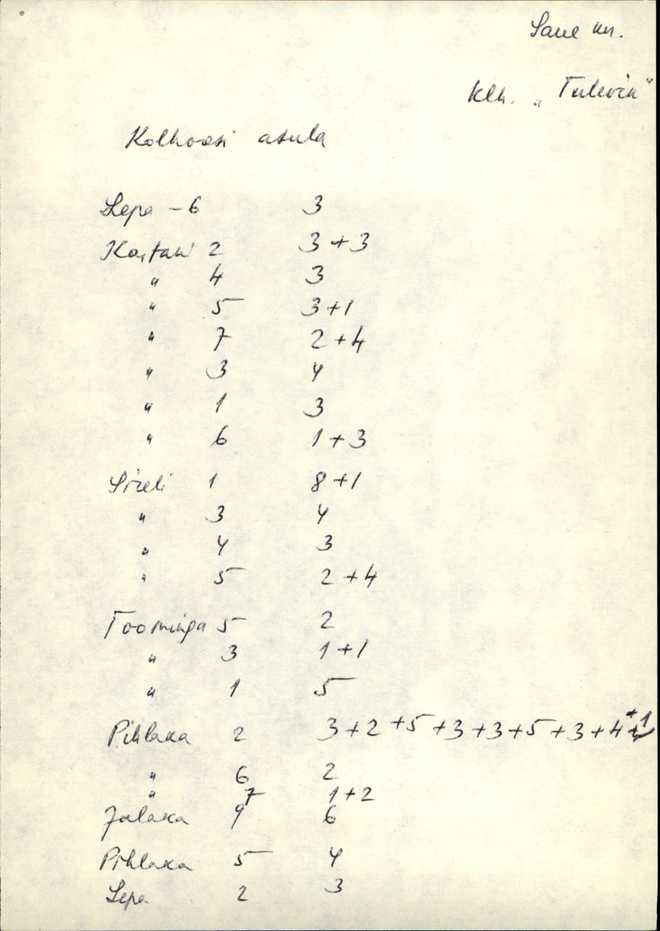 Saue kn.
klh. „Tulevik"
Kolhoosi asula
Lepa - 6 3
Kastani 2 3+3
" 4 3
" 5 3+1
" 7 2+4
" 3 4
" 1 3
" 6 1+3
Sireli 1 8+1
" 3 4
" 4 3
" 5 2+4
Toominga 5 2
" 3 1+1
" 1 5
Pihlaka 2 3+2+5+3+3+5+3+4+1
" 6 2
" 7 1+2
Jalaka 9 6
Pihlaka 5 4
Lepa 2 3